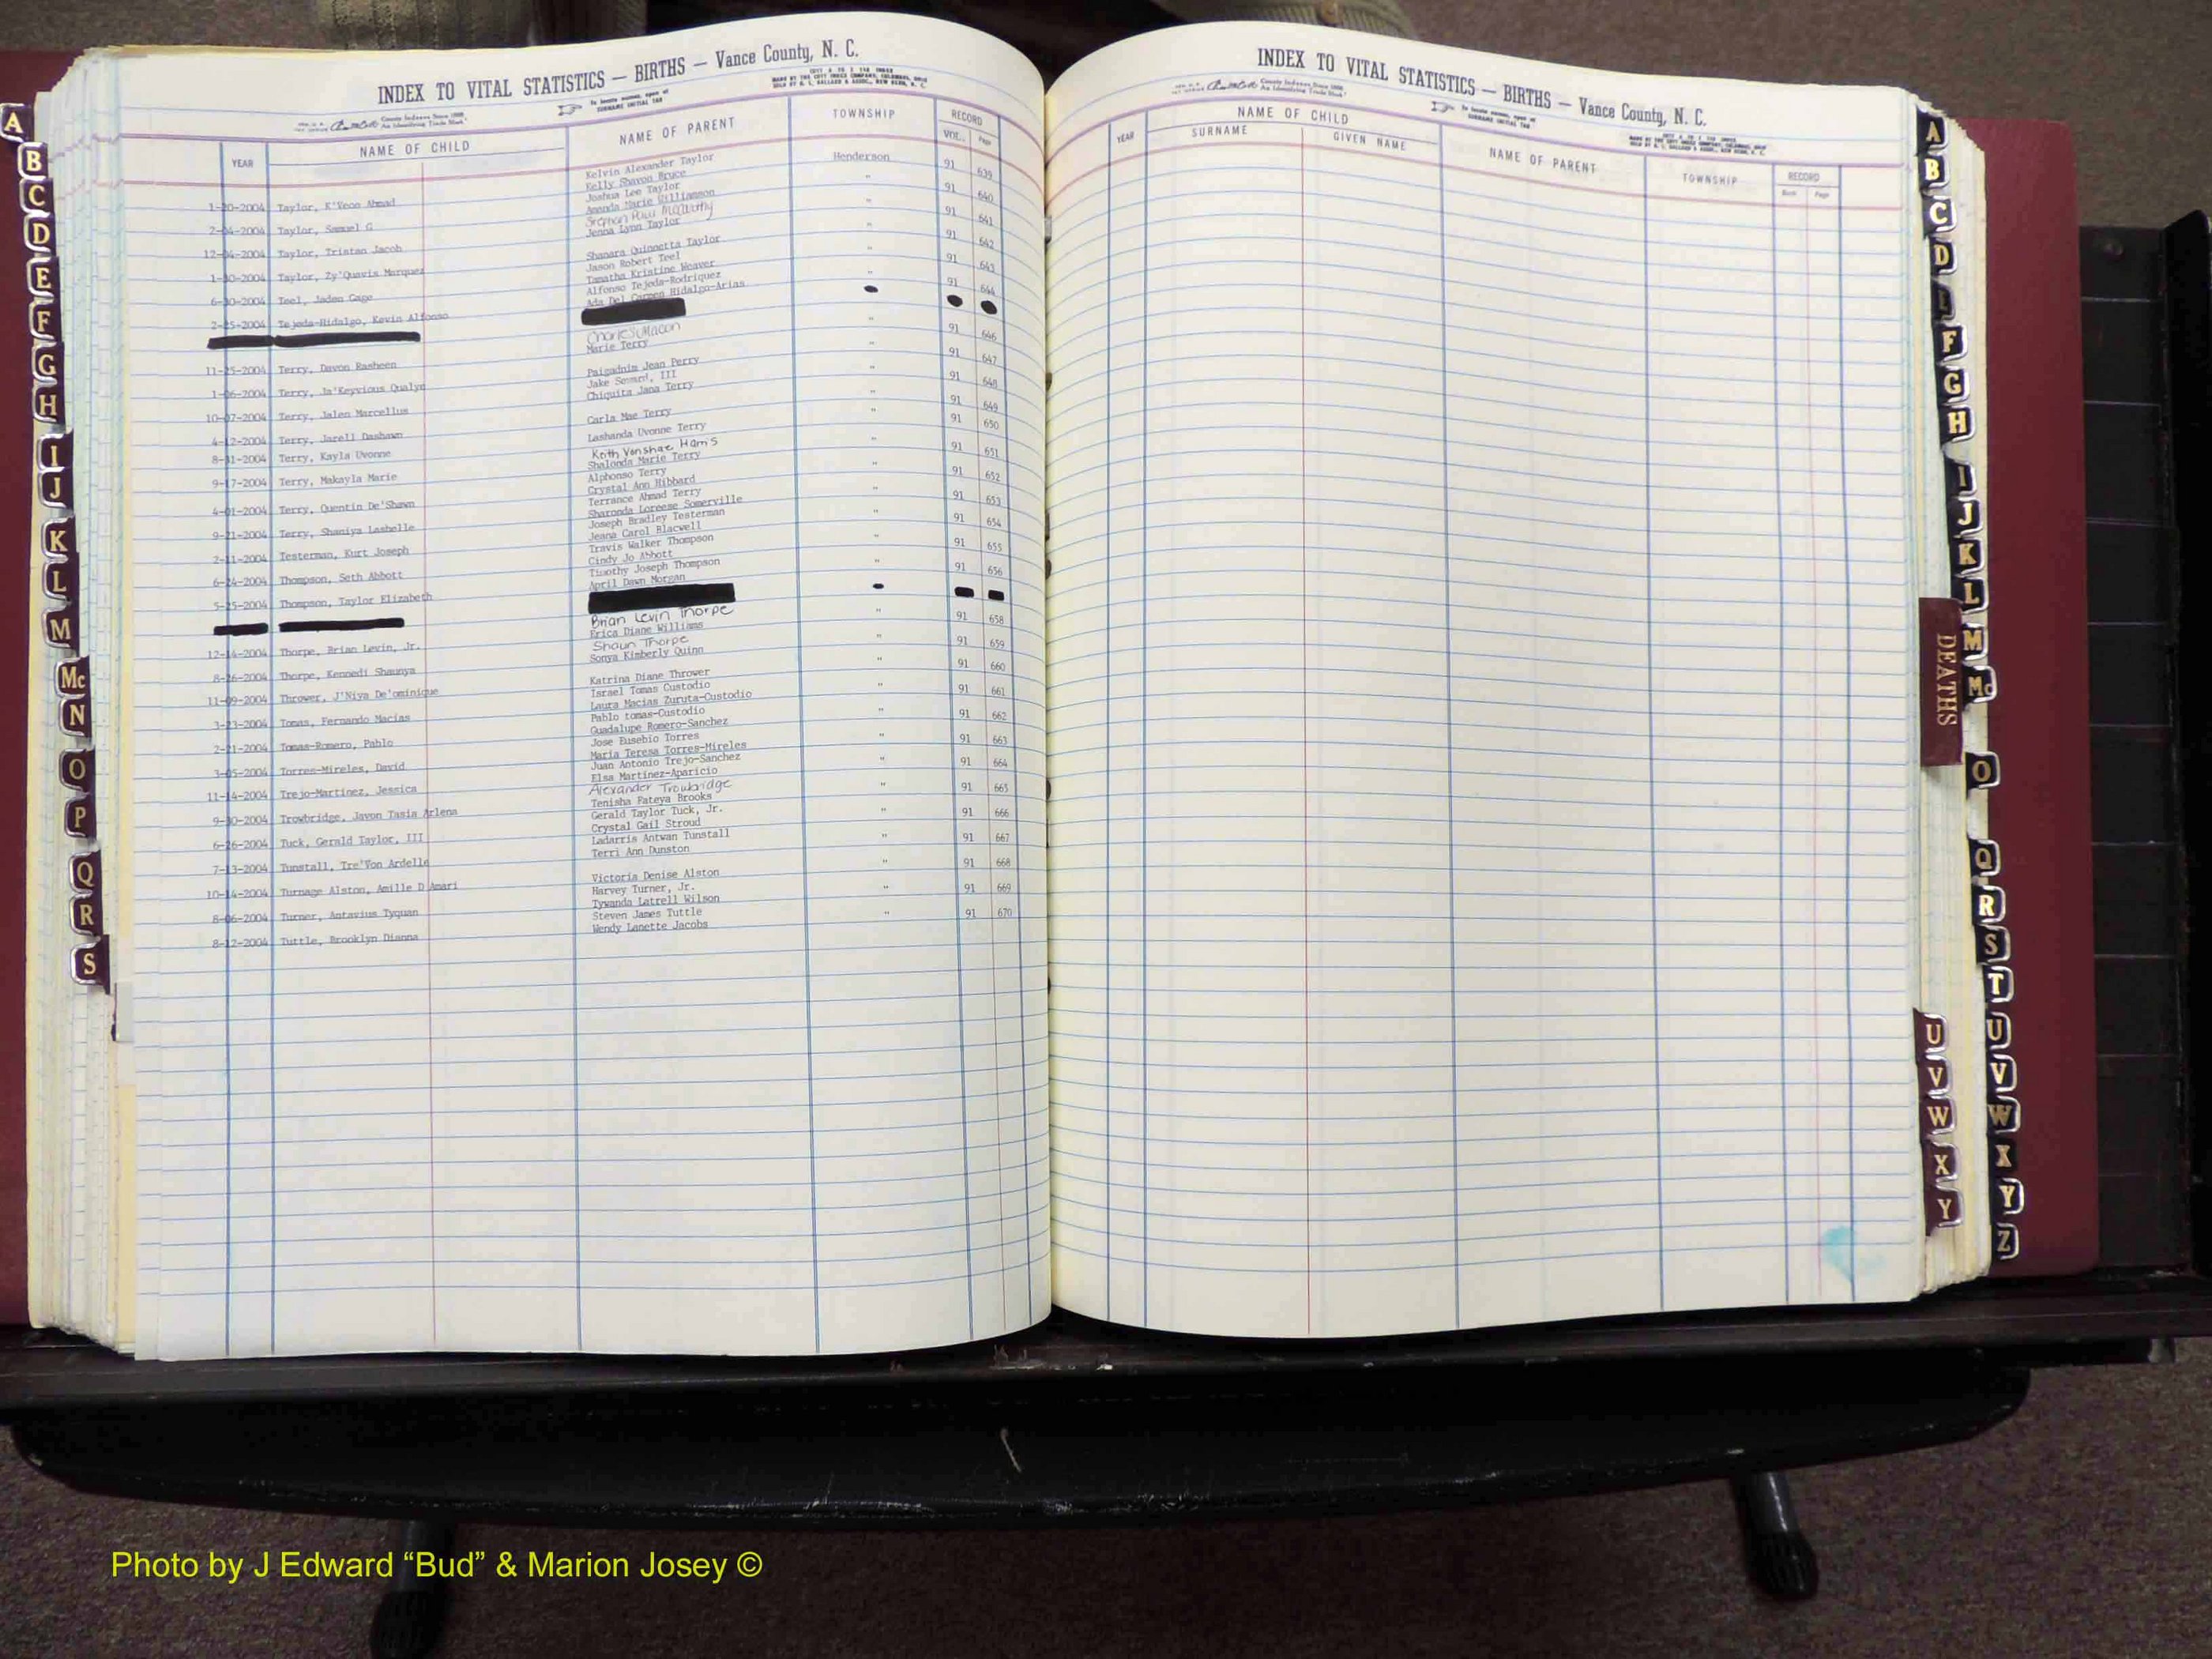 INDEX TO VITAL STATISTICS — BIRTHS — Vance County, N. C.
County Indexes Since 1888
An Identifying Trade Mark
To locate names, open at
SURNAME INITIAL TAB
YEAR NAME OF CHILD NAME OF PARENT TOWNSHIP RECORD
VOL. Page
Kelvin Alexander Taylor Henderson 91 639
1-20-2004 Taylor, K'Veon Ahmad Kelly Shavon Bruce
Joshua Lee Taylor " 91 640
2-04-2004 Taylor, Samuel G Amanda Marie Williamson
Stephen Paul McCarthy " 91 641
12-04-2004 Taylor, Tristan Jacob Jenna Lynn Taylor
" 91 642
1-30-2004 Taylor, Zy'Quavis Marquez Shanara Quinnetta Taylor
Jason Robert Teel " 91 643
6-30-2004 Teel, Jaden Gage Tamatha Kristine Weaver
Alfonso Tejeda-Rodriquez " 91 644
2-25-2004 Tejeda-Hidalgo, Kevin Alfonso Ada Del Carmen Hidalgo-Arias
Charles Macon " 91 646
11-25-2004 Terry, Davon Rasheen Marie Terry
" 91 647
1-06-2004 Terry, Ja'Keyvious Qualyn Paigadnim Jean Perry
Jake Seward, III " 91 648
10-07-2004 Terry, Jalen Marcellus Chiquita Jana Terry
" 91 649
4-12-2004 Terry, Jarell Dashawn Carla Mae Terry
" 91 650
8-31-2004 Terry, Kayla Uvonne Lashanda Uvonne Terry
Keith Vonshae Harris " 91 651
9-17-2004 Terry, Makayla Marie Shalonda Marie Terry
Alphonso Terry " 91 652
4-01-2004 Terry, Quentin De'Shawn Crystal Ann Hibbard
Terrance Ahmad Terry " 91 653
9-21-2004 Terry, Shaniya Lashelle Sharonda Loreese Somerville
Joseph Bradley Testerman " 91 654
2-11-2004 Testerman, Kurt Joseph Jeana Carol Blacwell
Travis Walker Thompson " 91 655
6-24-2004 Thompson, Seth Abbott Cindy Jo Abbott
Timothy Joseph Thompson " 91 656
5-25-2004 Thompson, Taylor Elizabeth April Dawn Morgan
Brian Levin Thorpe " 91 658
12-14-2004 Thorpe, Brian Levin, Jr. Erica Diane Williams
Shaun Thorpe " 91 659
8-26-2004 Thorpe, Kennedi Shaunya Sonya Kimberly Quinn
" 91 660
11-09-2004 Thrower, J'Niya De'ominique Katrina Diane Thrower
Israel Tomas Custodio " 91 661
3-23-2004 Tomas, Fernando Macias Laura Macias Zuruta-Custodio
Pablo tomas-Custodio " 91 662
2-21-2004 Tomas-Romero, Pablo Guadalupe Romero-Sanchez
Jose Eusebio Torres " 91 663
3-05-2004 Torres-Mireles, David Maria Teresa Torres-Mireles
Juan Antonio Trejo-Sanchez " 91 664
11-14-2004 Trejo-Martinez, Jessica Elsa Martinez-Aparicio
Alexander Trowbridge " 91 665
9-30-2004 Trowbridge, Javon Tasia Arlena Tenisha Fateya Brooks
Gerald Taylor Tuck, Jr. " 91 666
6-26-2004 Tuck, Gerald Taylor, III Crystal Gail Stroud
Ladarris Antwan Tunstall " 91 667
7-13-2004 Tunstall, Tre'Von Ardelle Terri Ann Dunston
" 91 668
10-14-2004 Turnage Alston, Amille D Amari Victoria Denise Alston
Harvey Turner, Jr. " 91 669
8-06-2004 Turner, Antavius Tyquan Tywanda Latrell Wilson
Steven James Tuttle " 91 670
8-12-2004 Tuttle, Brooklyn Dianna Wendy Lanette Jacobs
INDEX TO VITAL STATISTICS — BIRTHS — Vance County, N. C.
County Indexes Since 1888
An Identifying Trade Mark
To locate names, open at
SURNAME INITIAL TAB
YEAR NAME OF CHILD NAME OF PARENT TOWNSHIP RECORD
SURNAME GIVEN NAME Book Page
A
B
C
D
E
F
G
H
I
J
K
L
M
Mc
N
O
P
Q
R
S
A
B
C
D
F
G
H
I
J
K
L
M
Mc
O
Q
R
S
T
U
V
W
X
Y
Z
DEATHS
U
V
W
X
Y
Photo by J Edward “Bud” & Marion Josey ©